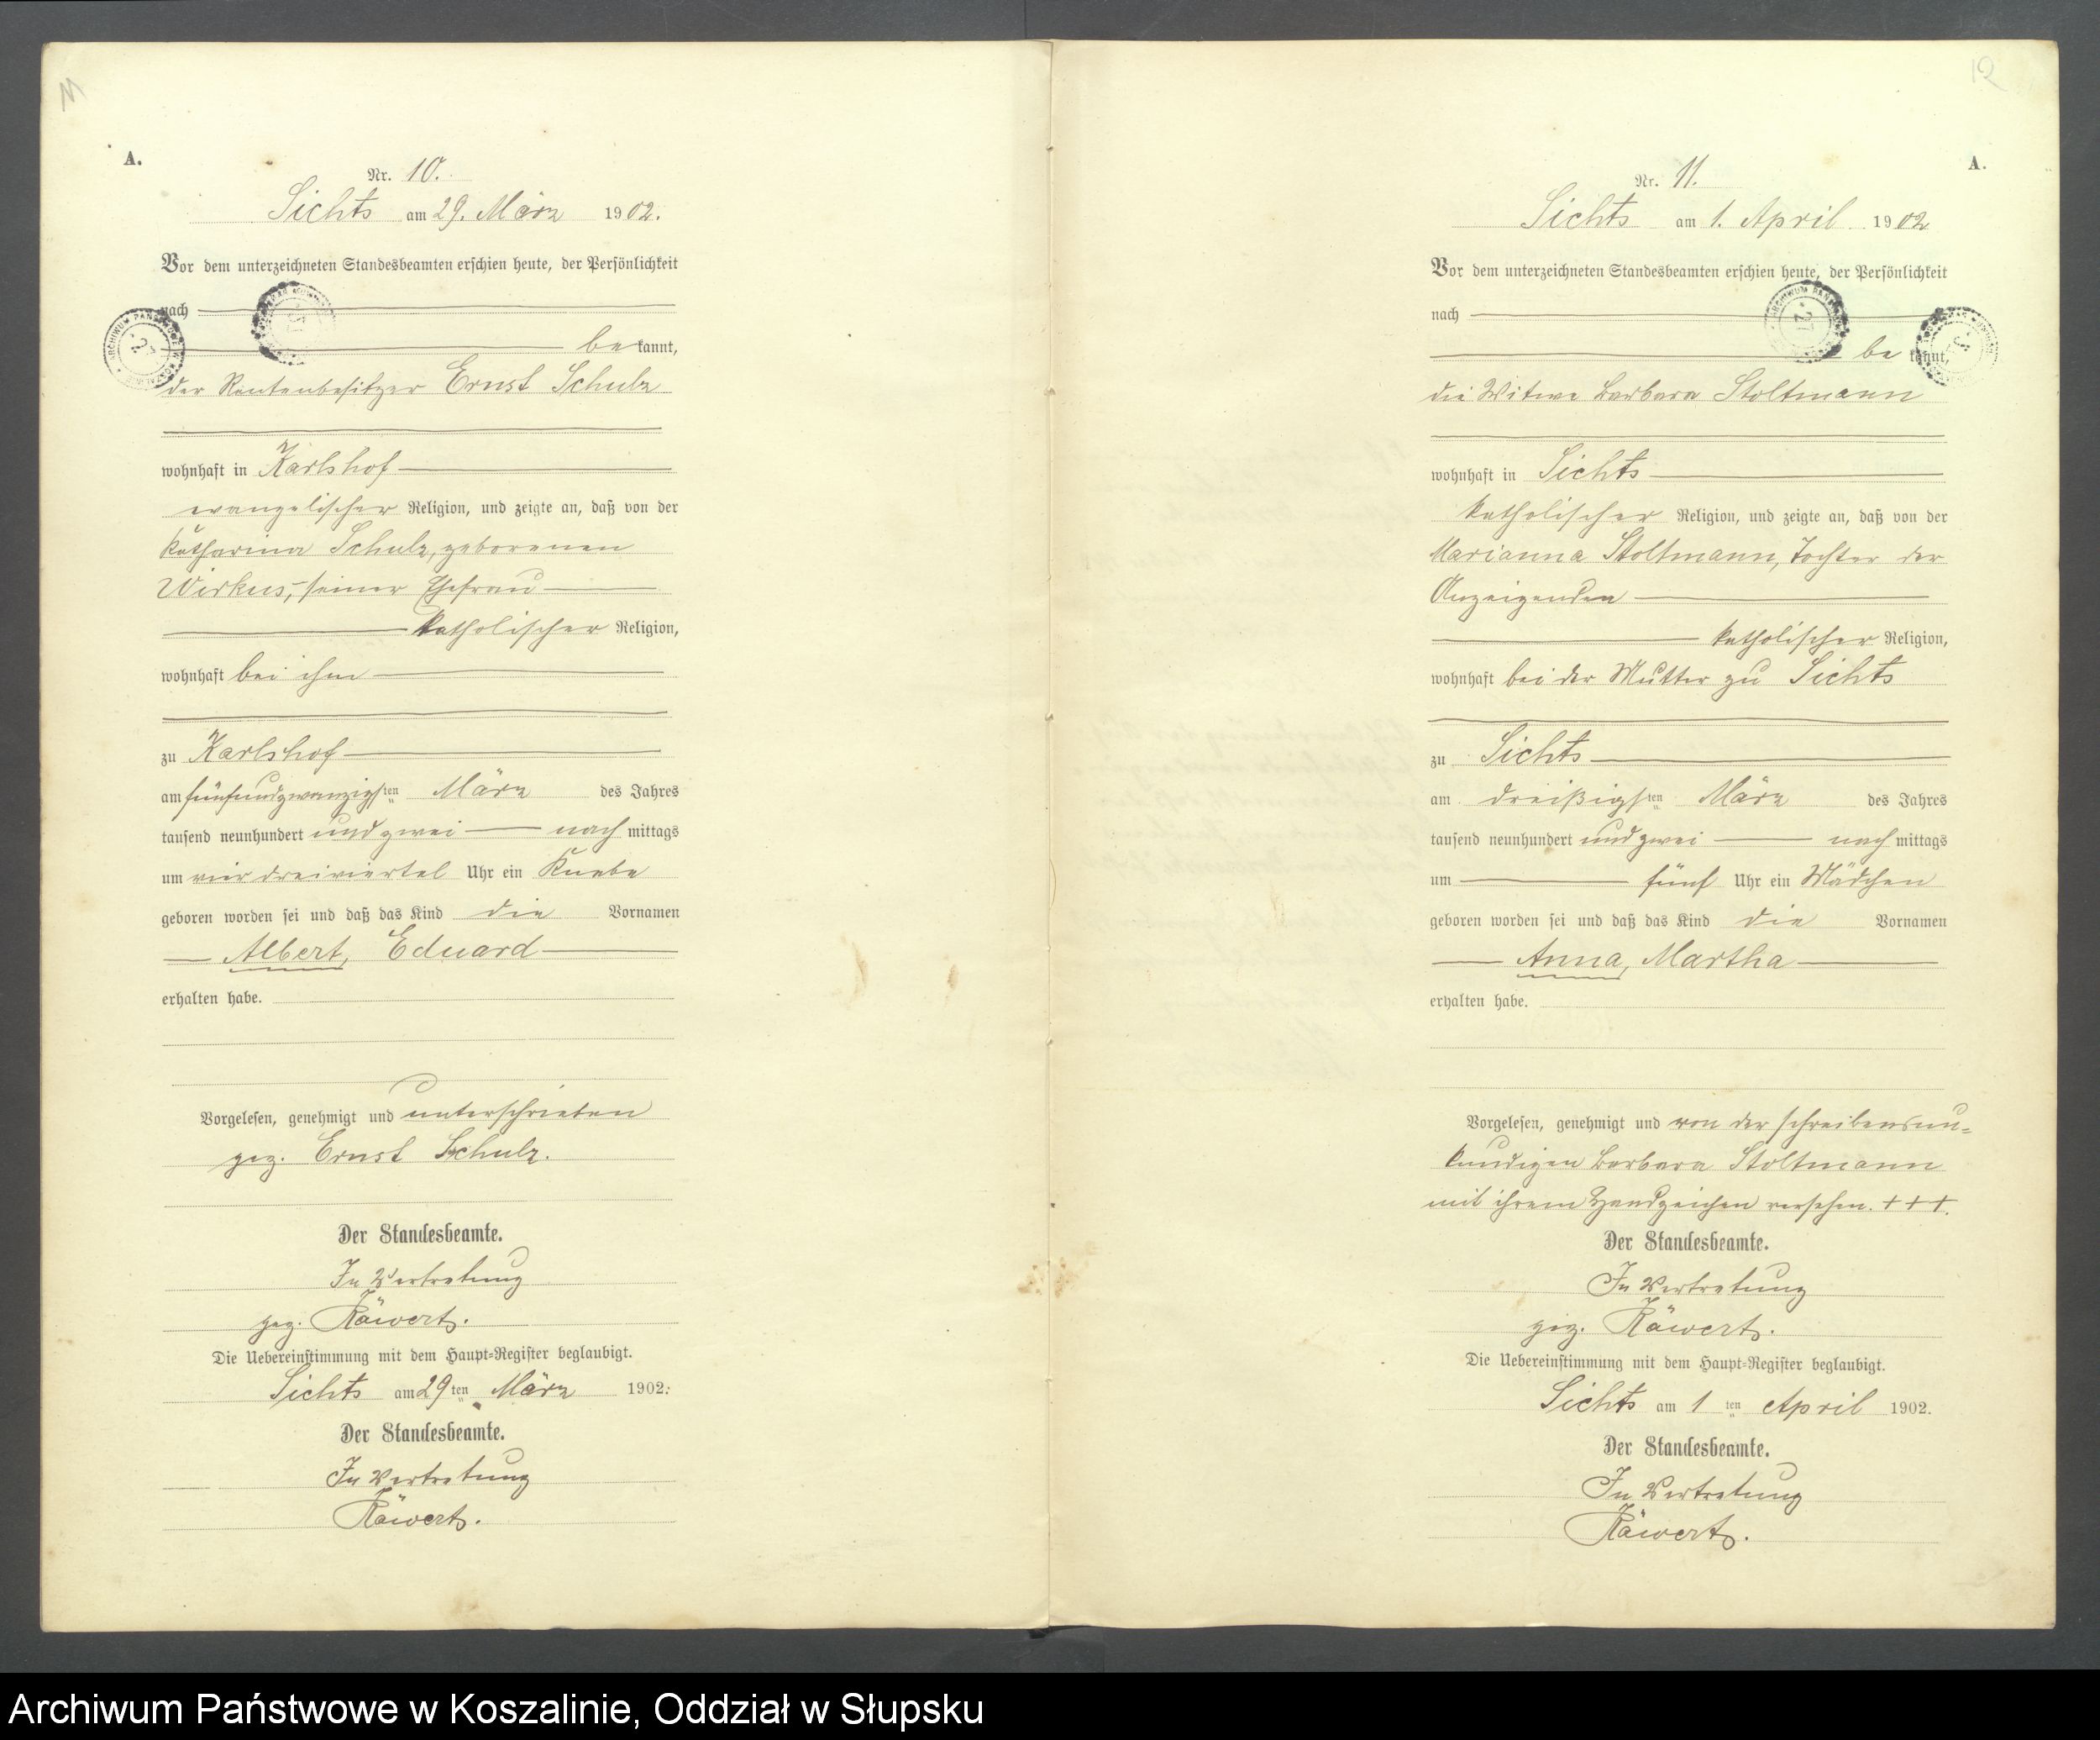 11
A.
Nr. 10.
Sichts am 29. März 1902.
Vor dem unterzeichneten Standesbeamten erschien heute, der Persönlichkeit
nach
be kannt,
der Rentenbesitzer Ernst Schulz
wohnhaft in Karlshof
evangelischer Religion, und zeigte an, daß von der
Katharina Schulz, geborenen
Wirkus, seiner Ehefrau
katholischer Religion,
wohnhaft bei ihm
zu Karlshof
am fünfundzwanzigsten März des Jahres
tausend neunhundert und zwei nach mittags
um vier dreiviertel Uhr ein Knabe
geboren worden sei und daß das Kind die Vornamen
Albert, Eduard
erhalten habe.
Vorgelesen, genehmigt und unterschrieben
gez. Ernst Schulz.
Der Standesbeamte.
In Vertretung
gez. Räwert.
Die Uebereinstimmung mit dem Haupt=Register beglaubigt.
Sichts am 29 ten März 1902.
Der Standesbeamte.
In Vertretung
Räwert.
12
A.
Nr. 11.
Sichts am 1. April 1902
Vor dem unterzeichneten Standesbeamten erschien heute, der Persönlichkeit
nach
be kannt,
die Witwe Barbara Stoltmann
wohnhaft in Sichts
katholischer Religion, und zeigte an, daß von der
Marianna Stoltmann, Tochter der
Anzeigenden
katholischer Religion,
wohnhaft bei der Mutter zu Sichts
zu Sichts
am dreißigsten März des Jahres
tausend neunhundert und zwei nach mittags
um fünf Uhr ein Mädchen
geboren worden sei und daß das Kind die Vornamen
Anna, Martha
erhalten habe.
Vorgelesen, genehmigt und von der schreibensun=
kundigen Barbara Stoltmann
mit ihrem Handzeichen versehen. + + +.
Der Standesbeamte.
In Vertretung
gez. Räwert.
Die Uebereinstimmung mit dem Haupt=Register beglaubigt.
Sichts am 1 ten April 1902.
Der Standesbeamte.
In Vertretung
Räwert.
Archiwum Państwowe w Koszalinie, Oddział w Słupsku